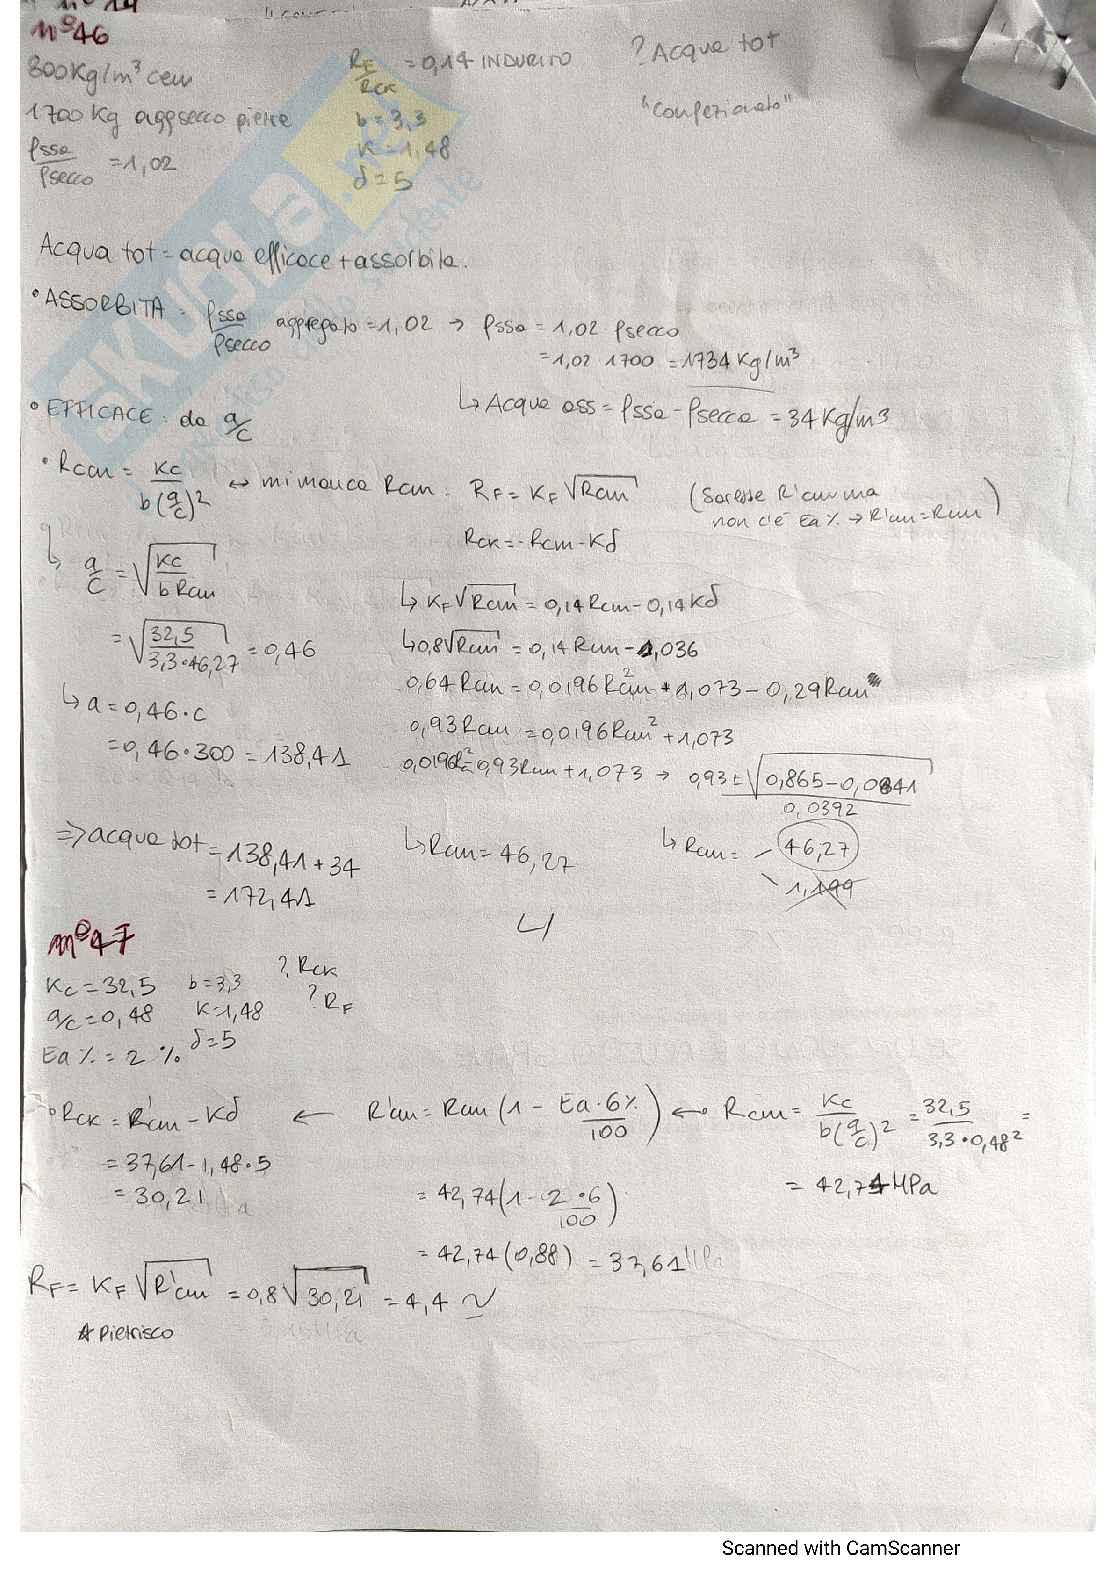 n°46
300Kg/m³ cem
1700 Kg aggsecco pietre
ρssa/ρsecco = 1,02
RF/Rck = 0,14 INDURITO
b = 3,3
K = 1,48
δ = 5
? Acqua tot
"confezionato"
Acqua tot = acqua efficace + assorbita.
• ASSORBITA = ρssa/ρsecco aggregato = 1,02 → ρssa = 1,02 ρsecco
= 1,02 1700 = 1734 Kg/m³
↳ Acqua ass = ρssa - ρsecco = 34 Kg/m3
• EFFICACE: da a/c
• Rcm = Kc/b(a/c)² ↔ mi manca Rcm: RF = KF √Rcm (Sarebbe R'cm ma
non c'è Ea% → R'cm = Rcm)
Rck = Rcm - Kδ
↳ a/c = √Kc/b Rcm
= √32,5/3,3·46,27 = 0,46
↳ a = 0,46·c
= 0,46·300 = 138,41
↳ KF √Rcm = 0,14 Rcm - 0,14 Kδ
↳ 0,8√Rcm = 0,14 Rcm - 1,036
0,64 Rcm = 0,0196 Rcm² + 1,073 - 0,29 Rcm
0,93 Rcm = 0,0196 Rcm² + 1,073
0,0196R² = 0,93 Rcm + 1,073 → 0,93 ± √0,865 - 0,0841/0,0392
↳ Rcm = 46,27
↳ Rcm = 46,27
1,199
⇒ acqua tot = 138,41 + 34
= 172,41
n°47
Kc = 32,5 b = 3,3 ? Rck
a/c = 0,48 K = 1,48 ? RF
Ea % = 2 % δ = 5
• Rck = R'cm - Kδ ← R'cm = Rcm (1 - Ea·6%/100) ← • Rcm = Kc/b(a/c)² = 32,5/3,3·0,48² =
= 37,61 - 1,48·5
= 30,21
= 42,74 (1 - 2·6/100)
= 42,74 MPa
= 42,74 (0,88) = 37,61 MPa
RF = KF √R'cm = 0,8 √30,21 = 4,4 ~
Pietrisco
SKUOLA.net
Scanned with CamScanner